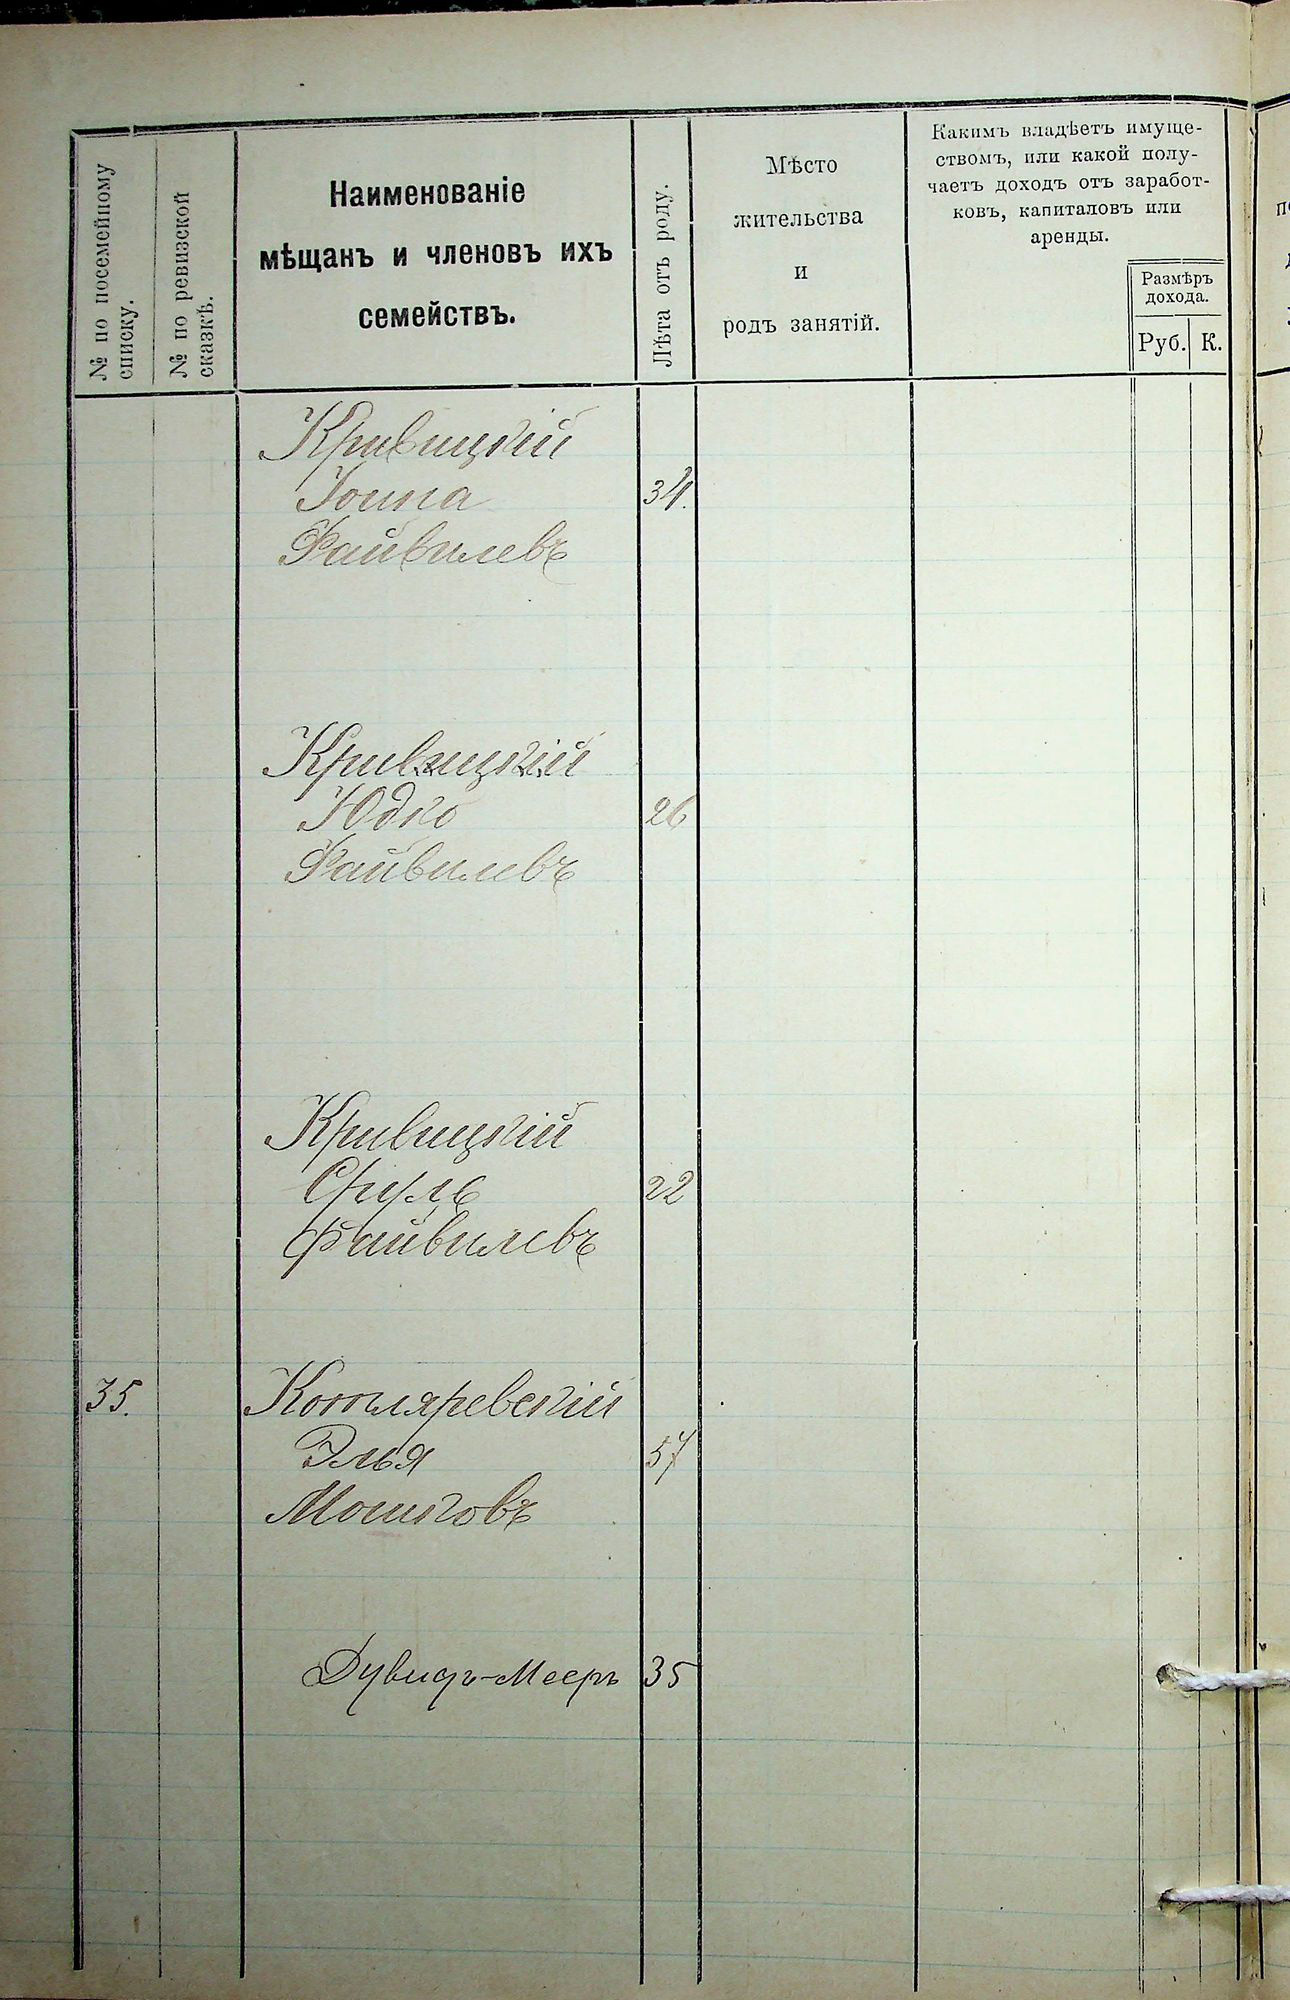 № по посемейному
списку.
№ по ревизской
сказкѣ.
Наименованіе
мѣщанъ и членовъ ихъ
семействъ.
Лѣта отъ роду.
Мѣсто
жительства
и
родъ занятій.
Какимъ владѣетъ имуще-
ствомъ, или какой полу-
чаетъ доходъ отъ заработ-
ковъ, капиталовъ или
аренды.
Размѣръ
дохода.
Руб. К.
Кривицкій
Іонна 34.
Файвилевъ
Кривицкій
Юдко 26
Файвилевъ
Кривицкій
Сруль 22
Файвилевъ
35. Котляревскій
Элья 57
Мошковъ
Дувидъ-Мееръ 35